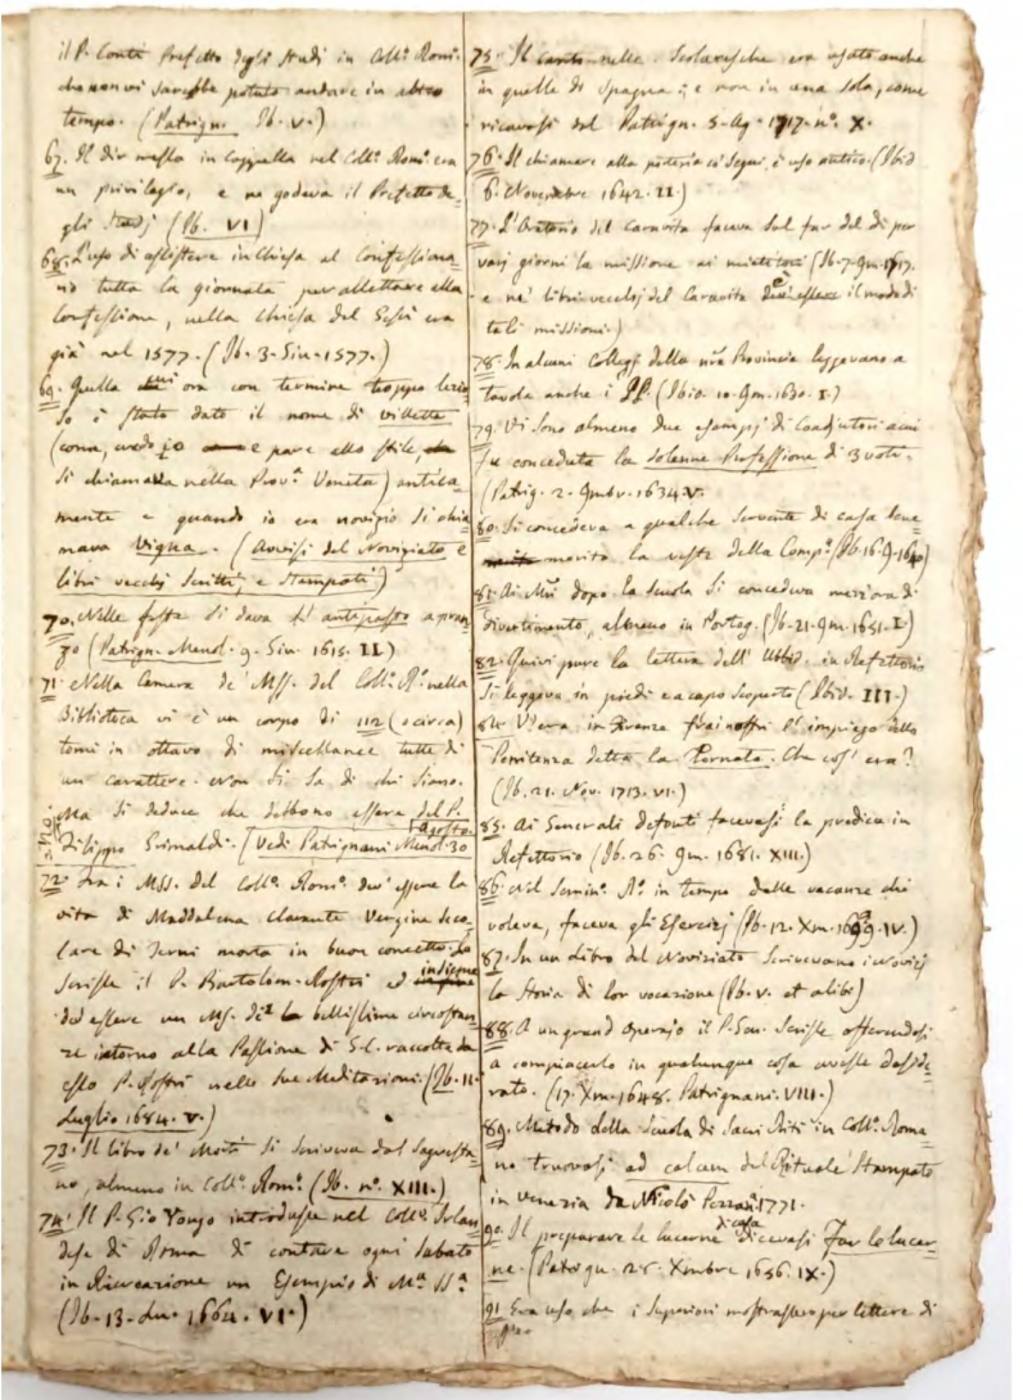 il P. Conti Prefetto degli studi in Coll.º Rom.º
che non vi sarebbe potuto andare in altro
tempo. (Patrign. Ib. V.)
67. Il dir messa in Cappella nel Coll.º Rom.º era
un privilegio, e ne godeva il Prefetto de=
gli Studj (Ib. VI)
68. L'uso di assistere in Chiesa al Confessiona=
rio tutta la giornata per allettare alla
Confessione, nella Chiesa del Gesù era
già nel 1577. (Ib. 3. Giu. 1577.)
69. Quella cui ora con termine troppo lezio=
so è stato dato il nome di villetta
(come, credo io e pare allo stile,
si chiamava nella Prov.ª Veneta) antica=
mente e quando io era novizio si chia=
mava Vigna. (Avvisi del Noviziato e
libri vecchj scritti, e stampati)
70. Nelle feste si dava l'antipasto a pran=
zo (Patrign. Menol. 9. Giu. 1615. II.)
71. Nella Camera de' MSS. del Coll.º R.º nella
Biblioteca vi è un corpo di 112 (o circa)
tomi in ottavo di miscellanee tutte di
un carattere. Non si sa di chi siano.
Ma si deduce che debbono essere del P.
Filippo Grimaldi. (Vedi Patrignani Menol. 30
Agosto.
72. Fra i MSS. del Coll.º Rom.º dev'essere la
vita di Maddalena Vergine Seco=
lare di Terni morta in buon concetto. La
scrisse il P. Bartolom. Rostri ed insieme
dev'essere un MS. di bellissime circostan=
ze intorno alla Passione di G.C. raccolte da
esso P. Rostri nelle sue Meditazioni. (Ib. 11.
Luglio 1684. V.)
73. Il libro de' Morti si scriveva dal Sagresta=
no, almeno in Coll.º Rom.º (Ib. n.º XIII.)
74. Il P. Gio Yongo introdusse nel Coll.º Irlan=
dese di Roma di contare ogni Sabato
in Ricreazione un Esempio di M.ª SS.ª
(Ib. 13. Lu. 1664. VI.)
75. Il canto nelle Scolaresche era usato anche
in quelle di Spagna; e non in una sola, come
ricavasi dal Patrign. 5. Ag. 1717. n.º X.
76. Il chiamare alla porteria co' segni, è uso antico. (Ibid
6. Novembre 1642. II.)
77. L'Oratorio del Caravita faceva sul far del dì per
varj giorni la missione ai mietitori (Ib. 7. 9m. 1717.
e ne' libri vecchj del Caravita il modo di
tali missioni.)
78. In alcuni Collegj della nra Provincia leggevano a
tavola anche i PP. (Ibid. 10. 9m. 1630. I.)
79. Vi sono almeno due esempj di Coadjutori a cui
fu conceduta la solenne Professione di 3 voti.
(Patrig. 2. 9mbr. 1634. V.
80. Si concedeva a qualche servente di casa bene=
merito la veste della Comp.ª (Ib. 16. 9. 1640)
81. Ai Nri dopo la scuola si concedeva mezz'ora di
divertimento, almeno in Portog. (Ib. 21. 9m. 1651. I.)
82. Quivi pure la lettera dell'Ubbid. in Refettorio
si leggeva in piedi e a capo scoperto (Ibid. III.)
84. V'era in Firenze frai nostri l'impiego della
Penitenza detta la Tornata. Che cos'era?
(Ib. 21. Nov. 1713. VI.)
85. Ai Generali defonti facevasi la predica in
Refettorio (Ib. 26. 9m. 1681. XIII.)
86. Nel Semin.º R.º in tempo delle vacanze chi
voleva, faceva gli Esercizj (Ib. 12. Xm. 1699. IV.)
87. In un Libro del Noviziato scrivevano i Novizj
la Storia di lor vocazione (Ib. V. et alibi)
88. A un grand'operajo il P. Gen. scrisse offerendosi
a compiacerlo in qualunque cosa avesse deside=
rato. (17. Xm. 1648. Patrignani. VIII.)
89. Metodo della Scuola di Sacri Riti in Coll.º Roma=
no truovasi ad calcem del Rituale Stampato
in Venezia da Nicolò Pezzana 1771.
90. Il preparare le lucerne di casa dicevasi Far le lucer=
ne. (Patrign. 25. Xmbre 1656. IX.)
91. Era uso che i Superiori mostrassero per lettere di